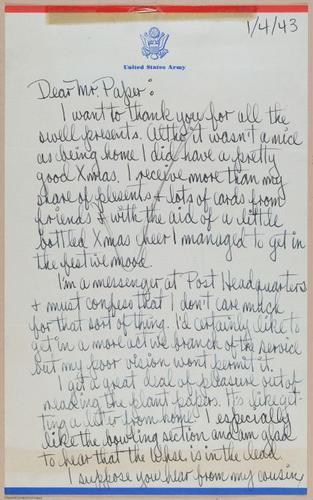 1/4/43
United States Army
Dear Mr. Paper:
I want to thank you for all the
swell presents. Altho it wasn't a nice
as being home I did have a pretty
good Xmas. I receive more than my
share of presents + lots of cards from
friends & with the aid of a little
bottled Xmas cheer I managed to get in
the festive mood.
I'm a messenger at Post Headquarters
+ must confess that I don't care much
for that sort of thing. I'd certainly like to
get in a more active branch of the service
but my poor vision wont permit it.
I get a great deal of pleasure out of
reading the plant papers. It's like get-
ting a letter from home. I especially
like the bowling section and am glad
to hear that the is in the lead.
I suppose you hear from my cousin,